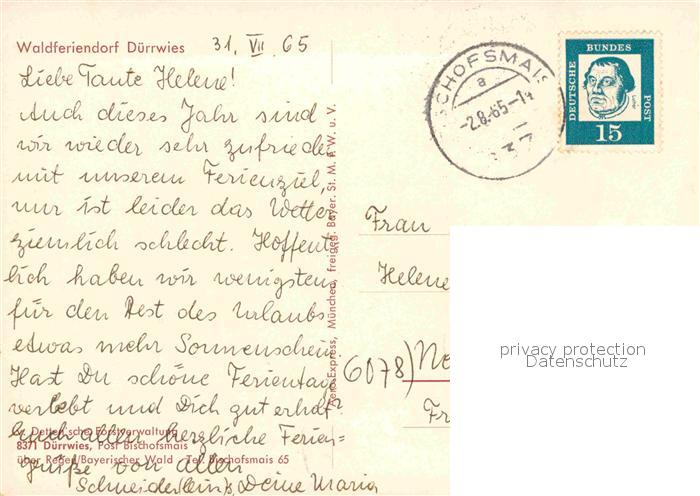 Waldferiendorf Dürrwies 31. VII. 65
Liebe Tante Helene!
Auch dieses Jahr sind
wir wieder sehr zufrieden
mit unserem Ferienziel,
nur ist leider das Wetter
ziemlich schlecht. Hoffent-
lich haben wir wenigstens
für den Rest des Urlaubs
etwas mehr Sonnenschein.
Hast Du schöne Ferientage
verlebt und Dich gut erholt?
Euch allen herzliche Ferien=
grüße von allen
Deine Maria
Forstverwaltung
8371 Dürrwies, Post Bischofsmais
über Regen/Bayerischer Wald - Tel. Bischofsmais 65
München, freigeg. Bayer. St. M. f. W. u. V.
SCHOFSMAIS
a
-2.8.65-14
DEUTSCHE
BUNDES
POST
Luther
15
Frau
Helene
(6078) Ne
Fr
privacy protection
Datenschutz